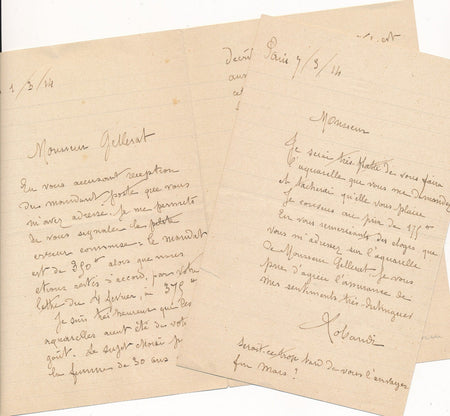 1/3/14
Monsieur Gellerat
En vous accusant réception
du mandant poste que vous
m'avez adressé. Je me permets
de vous signaler la petite
erreur commise : le mandat
est de 350 alors que nous
étions restés d'accord, par votre
lettre du 4 février, à 375
Je suis très heureux que les
aquarelles aient été de votre
goût. Le sujet choisi
la femmes de 30 ans
Paris 7/3/14
Monsieur
Je suis très flatté de vous faire
l'aquarelle que vous me demandez
et tacherai qu'elle vous plaise
Je consens au prix de 375
En vous remerciant des éloges que
vous m'adressez sur l'aquarelle
de Monsieur Gellerat, je vous
prie d'agréer l'assurance de
mes sentiments très distingués
Robaudi
Serait-ce trop tard de vous l'envoyer
fin Mars ?